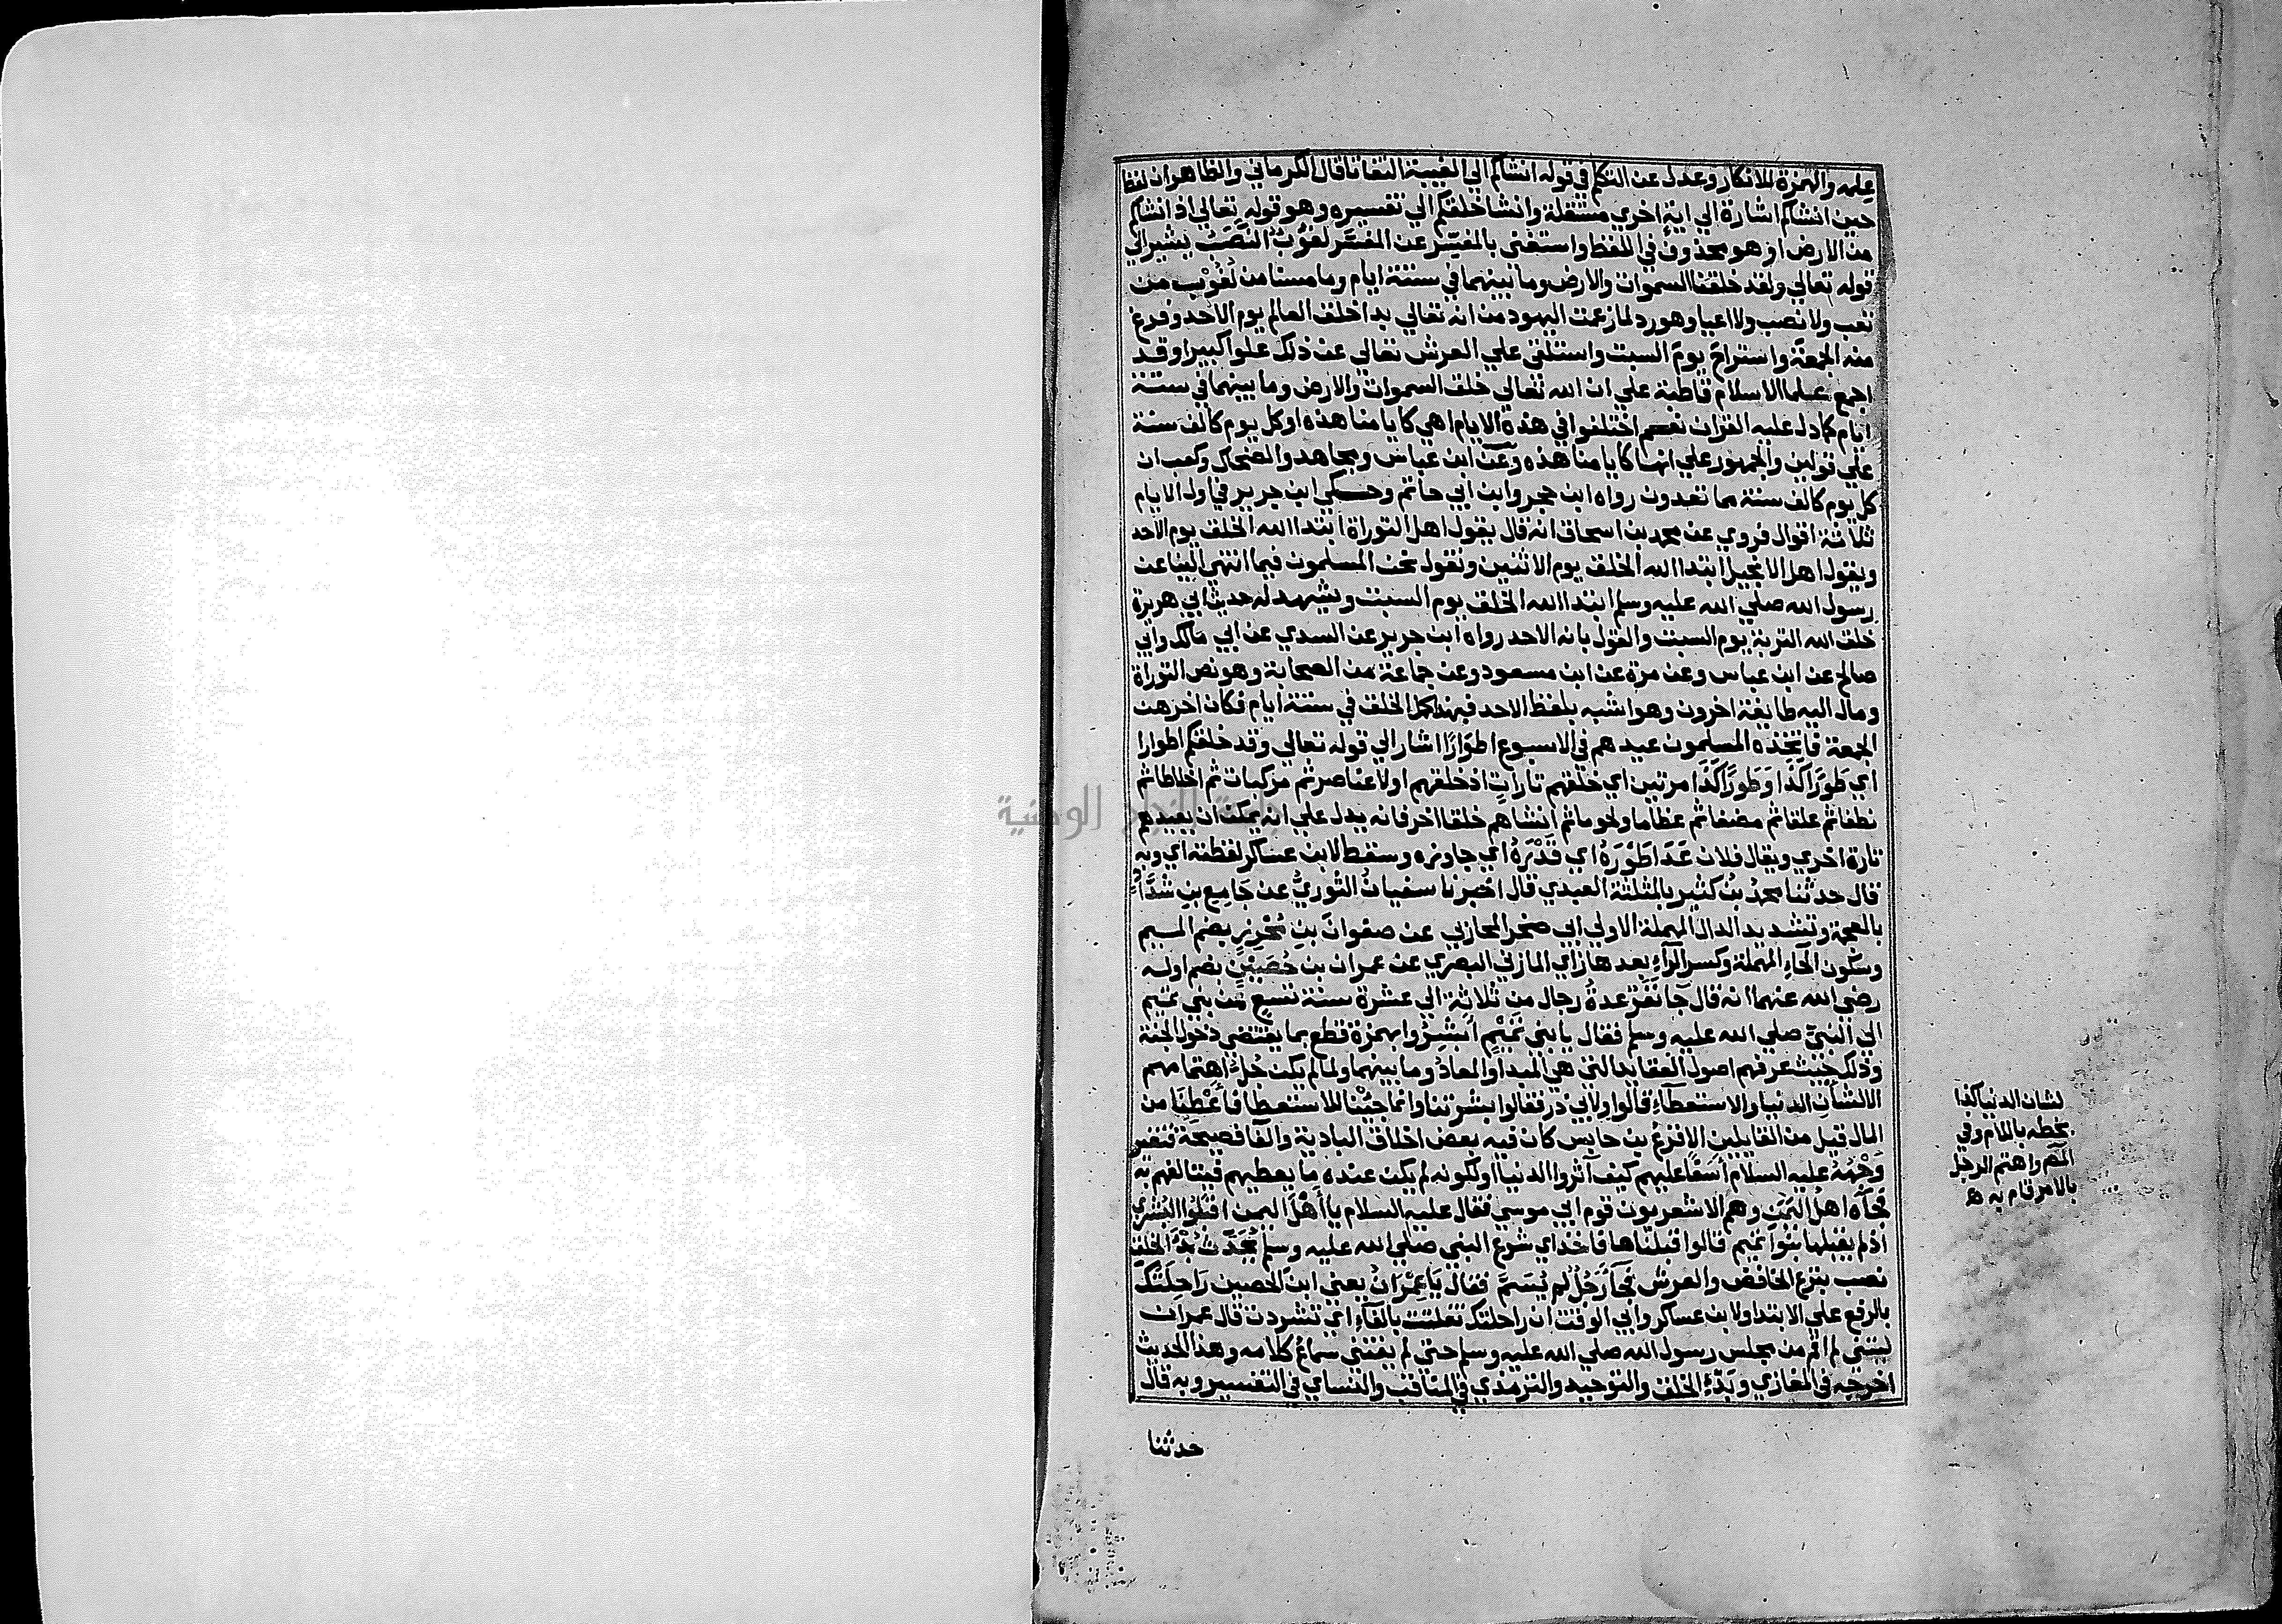 علمه والهمزة للانكار وعدل عن التكلم في قوله انشاكم الي الغيبة التفاتا قال الكرماني والظاهر ان لفظ
حين انشاكم اشارة الي اية اخري مستقلة وانشا خلقكم الي تفسيره وهو قوله تعالي اذ انشاكم
من الارض او هو محذوف في اللفظ واستغني بالمفسِّر عن المفسَّر لغوُبٌ النَّصَبُ يشير الي
قوله تعالي ولقد خلقنا السموات والارض وما بينهما في ستة ايام وما مسنا من لُغُوْبٍ من
تعب ولا نصب ولا اعيا وهو رد لما زعمت اليهود من انه تعالي بدا خلق العالم يوم الاحد وفرغ
منه الجمعة واستراح يوم السبت واستلقي علي العرش تعالي عن ذلك علوا كبيرا وقد
اجمع علما الاسلام قاطبة علي ان الله تعالي خلق السموات والارض وما بينهما في ستة
ايام كما دل عليه القران نعم اختلفوا في هذه الايام اهي كايامنا هذه او كل يوم كالف سنة
علي قولين والجمهور علي انها كايامنا هذه وعن ابن عباس ومجاهد والضحاك وكعب ان
كل يوم كالف سنة مما تعدون رواه ابن حجر وابن ابي حاتم وحكي ابن جرير في اول الايام
ثلاثة اقوال فروي عن محمد بن اسحاق انه قال يقول اهل التوراة ابتدا الله الخلق يوم الاحد
ويقول اهل الانجيل ابتدا الله الخلق يوم الاثنين ونقول نحن المسلمون فيما انتهي الينا عن
رسول الله صلي الله عليه وسلم ابتدا الله الخلق يوم السبت ويشهد له حديث ابي هريرة
خلق الله التربة يوم السبت والقول بانه الاحد رواه ابن جرير عن السدي عن ابي مالك وابي
صالح عن ابن عباس وعن مرة عن ابن مسعود وعن جماعة من الصحابة وهو نص التوراة
ومال اليه طايفة اخرون وهو اشبه بلفظ الاحد فهذا كمل الخلق في ستة ايام فكان اخرهن
الجمعة فاتخذه المسلمون عيدهم في الاسبوع اطوَارًا اشار الي قوله تعالي وقد خلقكم اطوارا
اي طَورًا كَذَا وَطَورًا كَذَا مرتين اي خلقهم تارات اذ خلقهم اولا عناصر ثم مركبات ثم اخلاطا ثم
نطفا ثم علقا ثم مضغا ثم عظاما ولحوما ثم انشاهم خلقا اخر فانه يدل علي انه يمكن ان يعيدهم
تارة اخري ويقال فلان عَدَا طَوْرَهُ اي قَدْرَهُ اي جاوزه وسقط لابن عساكر لفظة اي وبه
قال حدثنا محمدُ بنُ كثير بالمثلثة العبدي قال اخبرنا سفيانُ الثوريُّ عن جَامِعِ بنِ شدَّادٍ
بالمعجمة وتشديد الدال المهملة الاولي ابي صخر المحاربي عن صفوانَ بنِ مُحْرِزٍ بضم الميم
وسكون الحاء المهملة وكسر الراء بعدها زاي المازني البصري عن عمران بن حُصَيْنٍ بضم اوله
رضي الله عنهما انه قال جَا نَفَرٌ عدةُ رجال من ثلاثة الي عشرة سنة تسع من بني تميم
الي النبي صلي الله عليه وسلم فقال يا بني تَمِيْمٍ ابشِرُوا بهمزة قطع بما يقتضي دخول الجنة
وذلك حيث عرفهم اصول العقايد التي هي المبدا والمعاد وما بينهما ولما لم يكن جُلُّ اهتمامهم
الا لشان الدنيا والاستعطاء قالوا ولابي ذر فقالوا بشرتنا وانما جئنا للاستعطا فأعْطِنَا من
المال قيل من القايلين الاقرعُ بن حابس كان فيه بعض اخلاق البادية والفا فصيحة فتغير
وَجْهُهُ عليه السلام أسَفًا عليهم كيف آثروا الدنيا او لكونه لم يكن عنده ما يعطيهم فيتالفهم به
فجَآهُ اهلُ اليَمَنِ وهم الاشعريون قوم ابي موسي فقال عليه السلام يا أهْلَ اليمن اقبَلُوا البُشْري
اذ لم يقبلها بنُوا تميم قالوا قبلناها فاخذ اي شرع النبي صلي الله عليه وسلم يُحَدِّثُ بَدْءَ الخلق
نصب بنزع الخافض والعرش فجَآ رَجُلٌ لم يُسَمَّ فقال يَا عِمْرَانُ يعني ابن الحصين رَاحِلَتُكَ
بالرفع علي الابتدا ولابن عساكر وابي الوقت ان راحلتك تفلتت بالفاء اي تشردت قال عمران
ليتني لم اقم من مجلس رسول الله صلي الله عليه وسلم حتي لم يفتني سماعُ كلامه وهذا الحديث
اخرجه في المغازي وبَدْءِ الخلق والتوحيد والترمذي في المناقب والنساي في التفسير وبه قال
حدثنا
لشان الدنيا كذا
بخطه باللام وفي
المصـ واهتم الرجل
بالامر قام به هـ
جامعة النجاح الوطنية